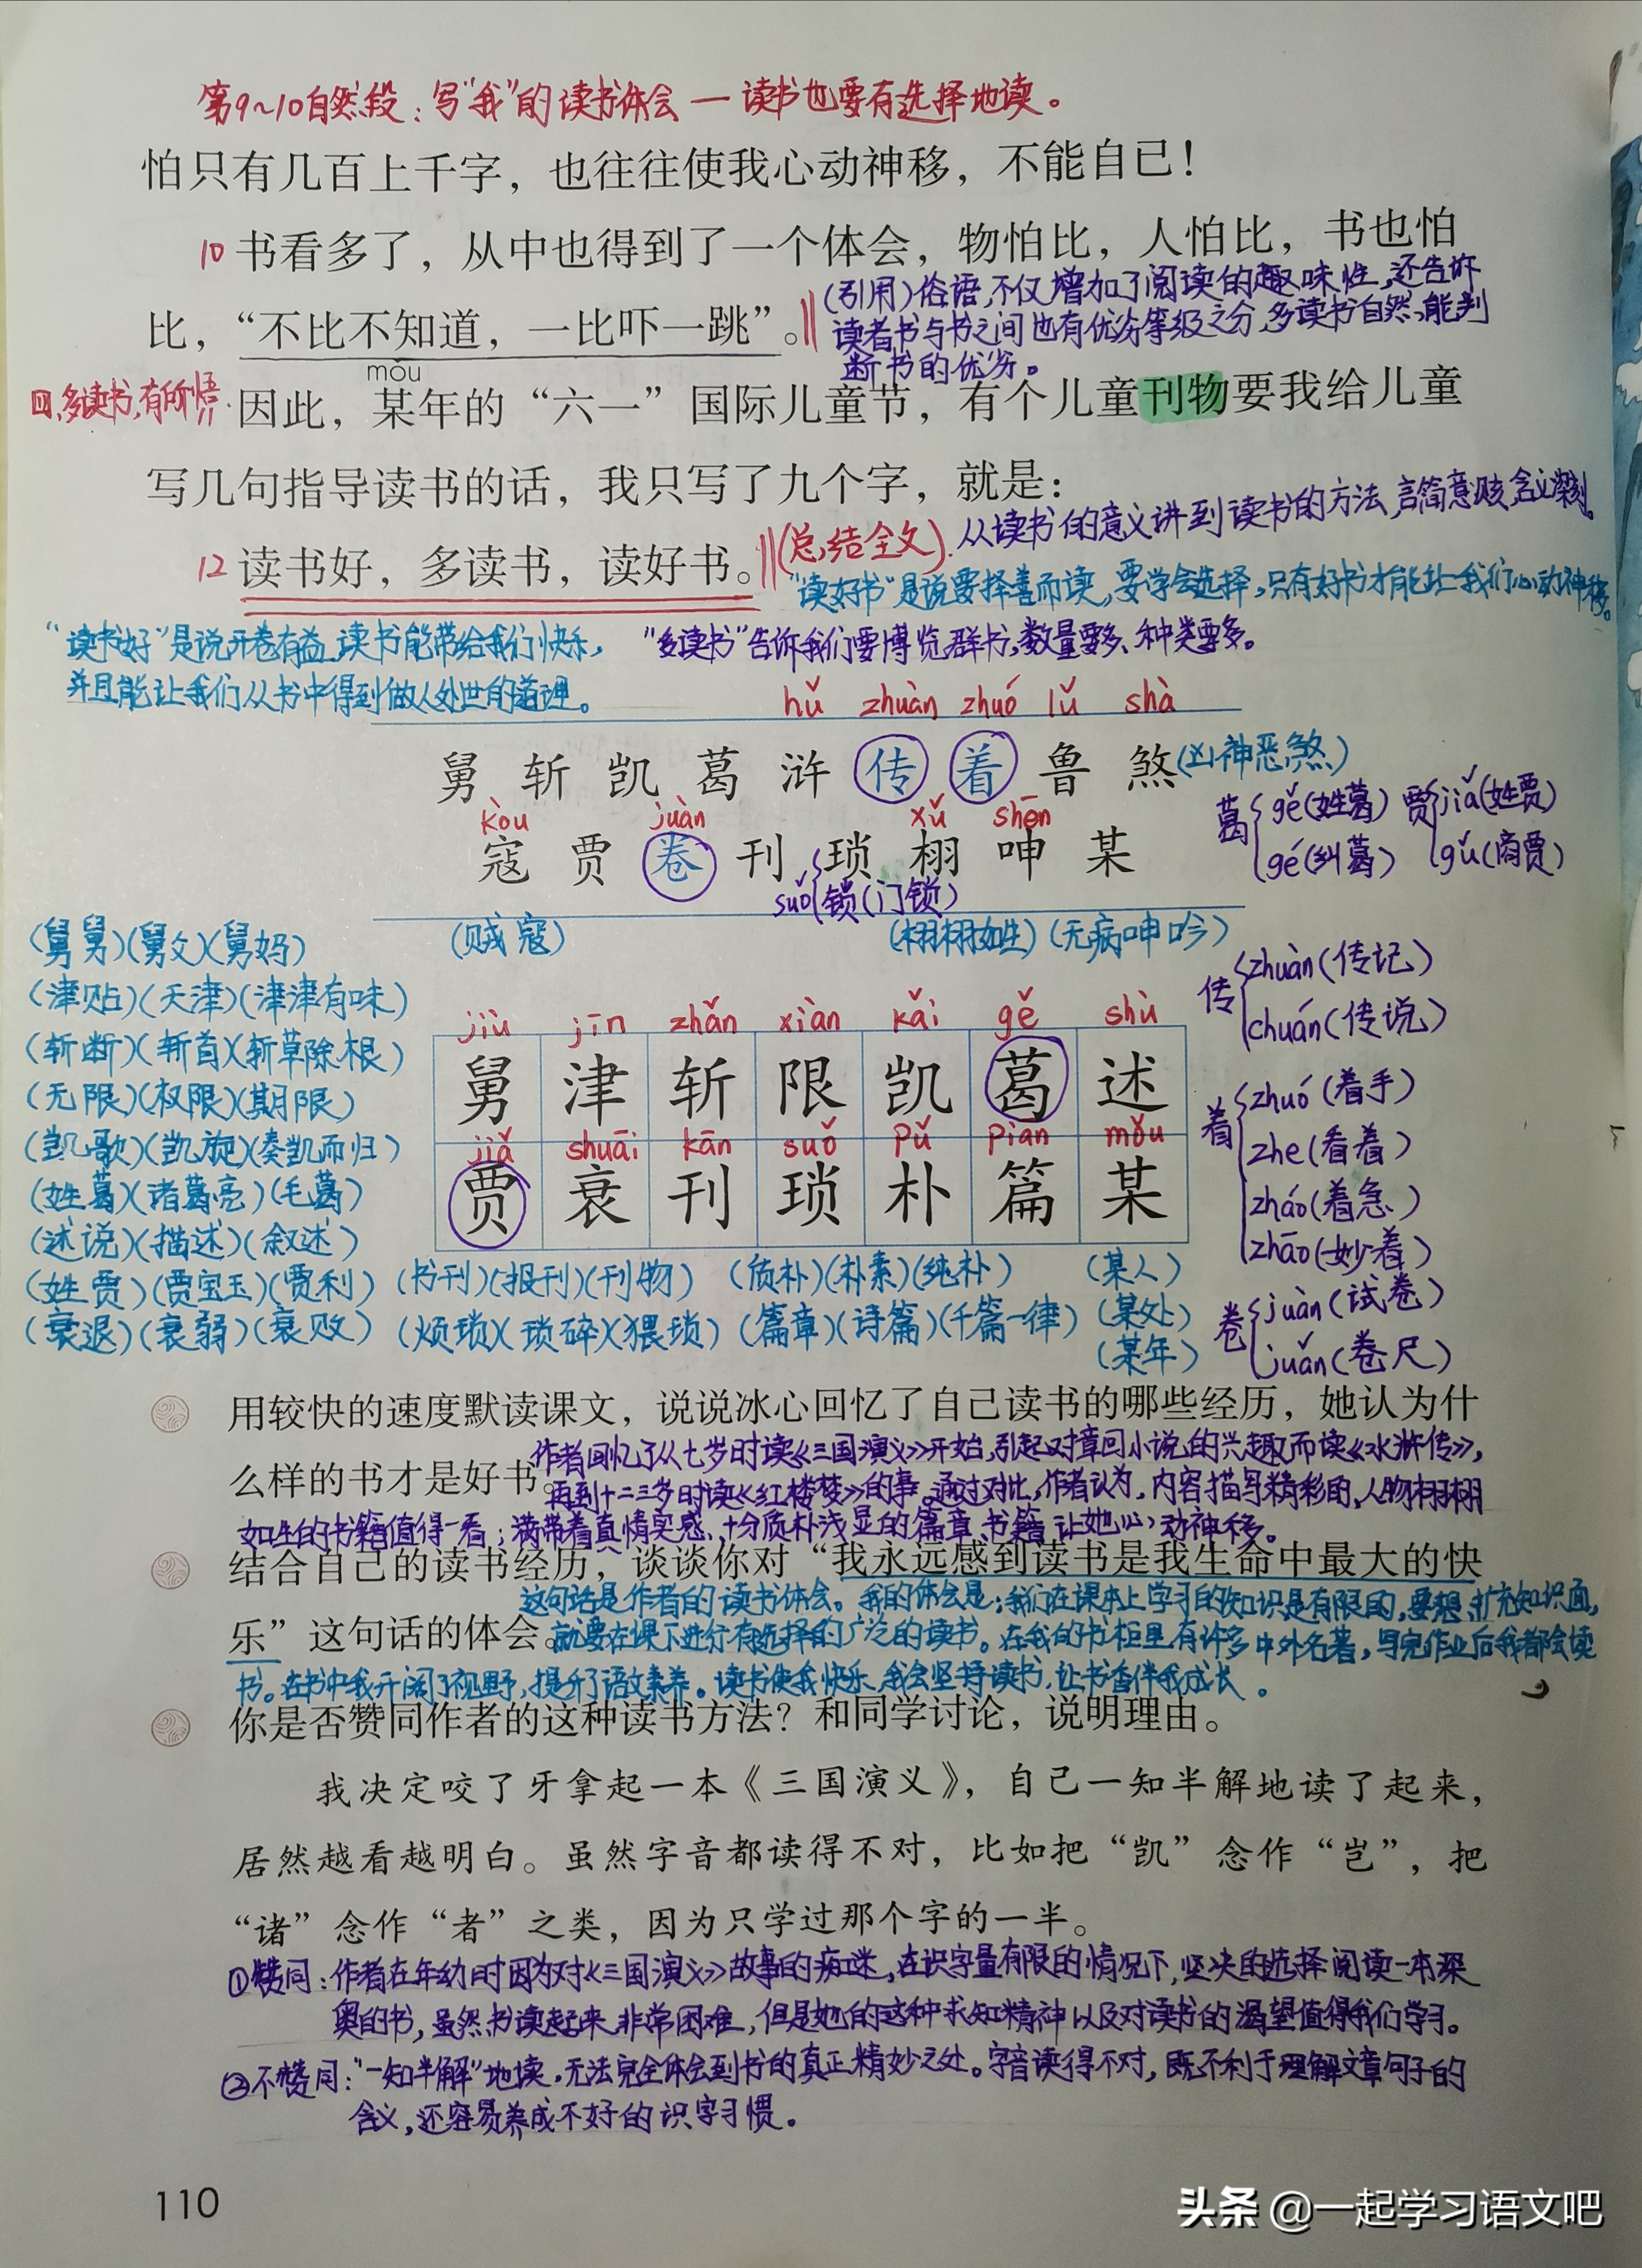 第9~10自然段：写“我”的读书体会—读书也要有选择地读。
怕只有几百上千字，也往往使我心动神移，不能自已！
10 书看多了，从中也得到了一个体会，物怕比，人怕比，书也怕
比，“不比不知道，一比吓一跳”。
(引用)俗语，不仅增加了阅读的趣味性，还告诉
读者书与书之间也有优劣等级之分，多读书自然能判
断书的优劣。
mǒu
四、多读书，有所悟
因此，某年的“六一”国际儿童节，有个儿童刊物要我给儿童
写几句指导读书的话，我只写了九个字，就是：
12 读书好，多读书，读好书。
(总结全文)．从读书的意义讲到读书的方法，言简意赅，含义深刻。
“读好书”是说要择善而读，要学会选择，只有好书才能让我们心动神移。
“读书好”是说开卷有益，读书能带给我们快乐，
并且能让我们从书中得到做人处世的道理。
“多读书”告诉我们要博览群书，数量要多、种类要多。
hǔ zhuàn zhuó lǔ shà
舅 斩 凯 葛 浒 传 着 鲁 煞(凶神恶煞)
kòu juàn xǔ shēn
寇 贾 卷 刊 琐 栩 呻 某
suǒ 锁(门锁)
葛 gě(姓葛) gé(纠葛)
贾 jiǎ(姓贾) gǔ(商贾)
(贼寇) (栩栩如生) (无病呻吟)
(舅舅)(舅父)(舅妈)
(津贴)(天津)(津津有味)
(斩断)(斩首)(斩草除根)
(无限)(权限)(期限)
(凯歌)(凯旋)(奏凯而归)
(姓葛)(诸葛亮)(毛葛)
(述说)(描述)(叙述)
(姓贾)(贾宝玉)(贾利)
(衰退)(衰弱)(衰败)
jiù jīn zhǎn xiàn kǎi gě shù
舅 津 斩 限 凯 葛 述
jiǎ shuāi kān suǒ pǔ piān mǒu
贾 衰 刊 琐 朴 篇 某
(书刊)(报刊)(刊物) (质朴)(朴素)(纯朴) (某人)
(烦琐)(琐碎)(猥琐) (篇章)(诗篇)(千篇一律) (某处)
(某年)
传 zhuàn(传记)
chuán(传说)
着 zhuó(着手)
zhe(看着)
zháo(着急)
zhāo(妙着)
卷 juàn(试卷)
juǎn(卷尺)
用较快的速度默读课文，说说冰心回忆了自己读书的哪些经历，她认为什
么样的书才是好书。
作者回忆了从七岁时读《三国演义》开始，引起对章回小说的兴趣而读《水浒传》，
再到十二三岁时读《红楼梦》的事。通过对比，作者认为，内容描写精彩的，人物栩栩
如生的书籍值得一看；满带着真情实感、十分质朴浅显的篇章、书籍让她心动神移。
结合自己的读书经历，谈谈你对“我永远感到读书是我生命中最大的快
乐”这句话的体会。
这句话是作者的读书体会。我的体会是：我们在课本上学习的知识是有限的，要想扩充知识面，
就要在课下进行有选择的广泛的读书。在我的书柜里有许多中外名著，写完作业后我都会读
书。在书中我开阔了视野，提升了语文素养。读书使我快乐，我会坚持读书，让书香伴我成长。
你是否赞同作者的这种读书方法？和同学讨论，说明理由。
我决定咬了牙拿起一本《三国演义》，自己一知半解地读了起来，
居然越看越明白。虽然字音都读得不对，比如把“凯”念作“岂”，把
“诸”念作“者”之类，因为只学过那个字的一半。
①赞同：作者在年幼时因为对《三国演义》故事的痴迷，在识字量有限的情况下，坚决的选择阅读一本深
奥的书，虽然书读起来非常困难，但是她的这种求知精神以及对读书的渴望值得我们学习。
②不赞同：“一知半解”地读，无法完全体会到书的真正精妙之处。字音读得不对，既不利于理解文章句子的
含义，还容易养成不好的识字习惯。
110
头条 @一起学习语文吧